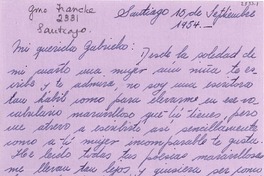 gmo Francke
2331
Santiago.
Santiago 10 de Septiembre
1954.-
Mi querida Gabriela: Desde la soledad de
mi cuarto una mujer aun niña te es
cribe y te admira, no soy una escritora
tan hábil como para elevarme en ese vo
cabulario maravilloso que tú tienes, pero
me atrevo a escribirte asi sencillamente
como a tí mujer incomparable te gusta.
He leido todos tus poemas maravillosos
me llevan tan lejos y quisiera ser como